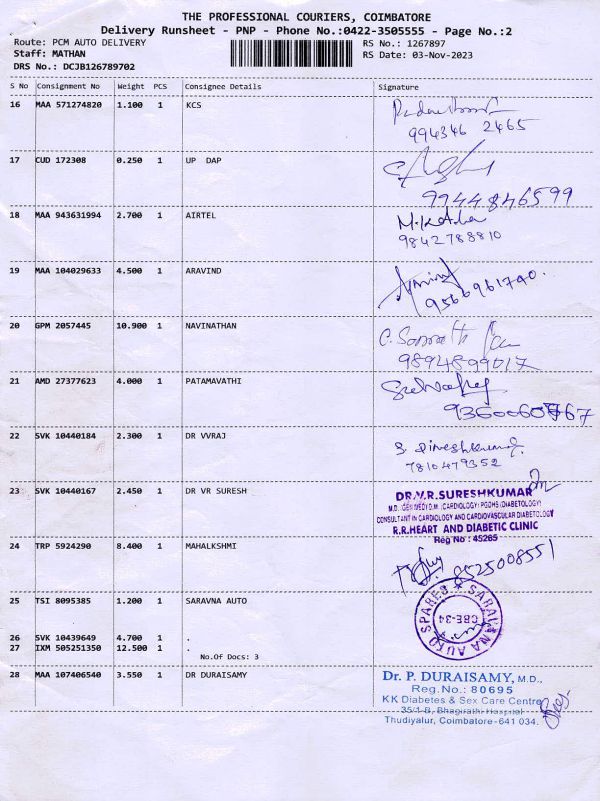 THE PROFESSIONAL COURIERS, COIMBATORE
Delivery Runsheet - PNP - Phone No.:0422-3505555 - Page No.:2
Route: PCM AUTO DELIVERY RS No.: 1267897
Staff: MATHAN RS Date: 03-Nov-2023
DRS No.: DCJB126789702
S No Consignment No Weight PCS Consignee Details Signature
16 MAA 571274820 1.100 1 KCS
994346 2465
17 CUD 172308 0.250 1 UP DAP
9944846599
18 MAA 943631994 2.700 1 AIRTEL
9842788810
19 MAA 104029633 4.500 1 ARAVIND
9566961740.
20 GPM 2057445 10.900 1 NAVINATHAN
9894899017
21 AMD 27377623 4.000 1 PATAMAVATHI
22 SVK 10440184 2.300 1 DR VVRAJ
S Dineshkumar.
7810479352
23 SVK 10440167 2.450 1 DR VR SURESH
DR.V.R.SURESHKUMAR
CONSULTANT IN CARDIOLOGY AND CARDIOVASCULAR DIABETOLOGY
R.R.HEART AND DIABETIC CLINIC
Reg No : 45265
24 TRP 5924290 8.400 1 MAHALKSHMI
8525008551
25 TSI 8095385 1.200 1 SARAVNA AUTO
SARAVANA AUTO SPARES
CBE-34
26 SVK 10439649 4.700 1 .
27 IXM 505251350 12.500 1 .
No.Of Docs: 3
28 MAA 107406540 3.550 1 DR DURAISAMY
Dr. P. DURAISAMY, M.D.,
Reg.No.: 80695
KK Diabetes & Sex Care Centre
35/1-B, Bhagirathi Hospital
Thudiyalur, Coimbatore-641 034.